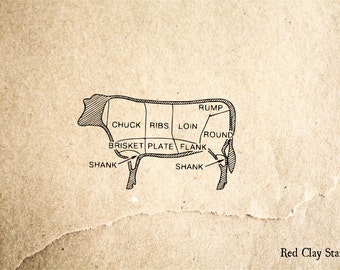 RUMP
CHUCK RIBS LOIN
ROUND
BRISKET PLATE FLANK
SHANK
SHANK
Red Clay Sta